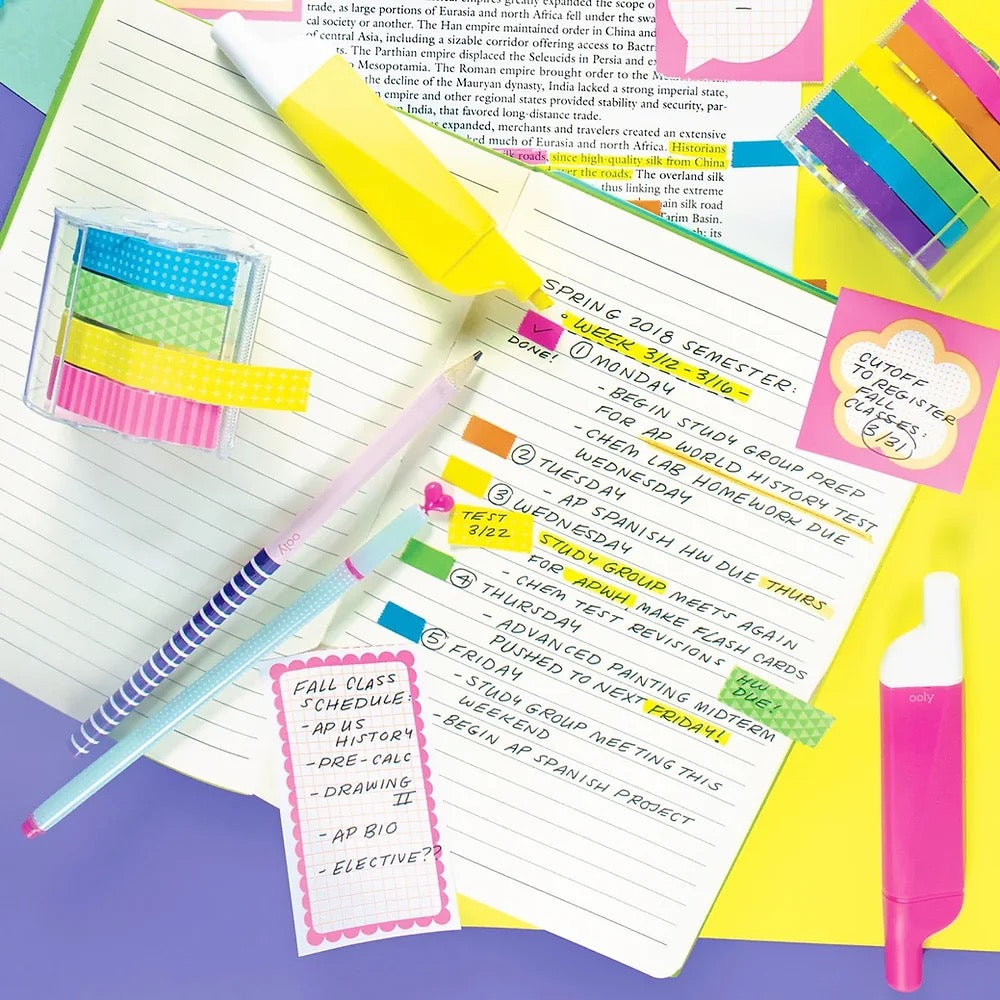 greatly expanded the scope o
trade, as large portions of Eurasia and north Africa fell under the swa
cal society or another. The Han empire maintained order in China and
of central Asia, including a sizable corridor offering access to Bactr
ts. The Parthian empire displaced the Seleucids in Persia and ex
Mesopotamia. The Roman empire brought order to the
the decline of the Mauryan dynasty, India lacked a strong imperial state,
empire and other regional states provided stability and security, par-
India, that favored long-distance trade.
expanded, merchants and travelers created an extensive
ked much of Eurasia and north Africa. Historians
silk roads, since high-quality silk from China
over the roads. The overland silk
thus linking the extreme
main silk road
Tarim Basin.
its
SPRING 2018 SEMESTER:
• WEEK 3/12 - 3/16 -
✓
DONE!
① MONDAY
- BEGIN STUDY GROUP PREP
FOR AP WORLD HISTORY TEST
- CHEM LAB HOMEWORK DUE
WEDNESDAY
② TUESDAY
- AP SPANISH HW DUE THURS
③ WEDNESDAY
TEST
3/22
STUDY GROUP MEETS AGAIN
FOR APWH MAKE FLASH CARDS
- CHEM TEST REVISIONS
④ THURSDAY
- ADVANCED PAINTING MIDTERM
PUSHED TO NEXT FRIDAY!
HW
DUE!
⑤ FRIDAY
- STUDY GROUP MEETING THIS
WEEKEND
- BEGIN AP SPANISH PROJECT
CUTOFF
TO REGISTER
FALL
CLASSES:
3/31
FALL CLASS
SCHEDULE:
- AP US
HISTORY
- PRE-CALC
- DRAWING
II
- AP BIO
- ELECTIVE??
ooly
ooly